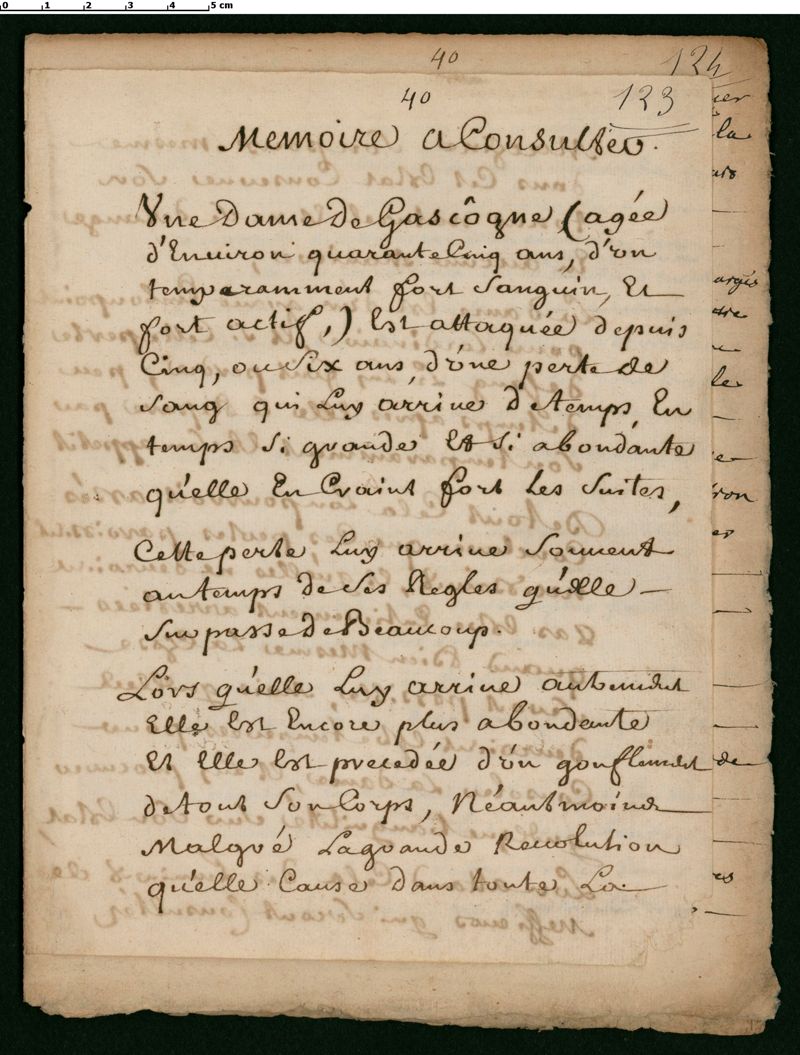 0 1 2 3 4 5 cm
40 124
40 123
Memoire a Consulter.
Vne Dame De Gascôgne, (agée
d'Enuiron quarante Cinq ans, d'vn
temperamment fort sanguin, Et
fort actif,) Est attaquée depuis
Cinq, ou Six ans d'vne perte de
sang qui Luy arriue de temps En
temps si grande Et si abondante
qu'elle En Craint fort Les suites,
Cette perte Luy arriue souuent
au temps de Ses Regles qu'Elle
surpasse de Beaucoup.
Lors qu'elle Luy arriue autrement
Elle Est Encore plus abondante
Et Elle Est precedée d'vn gonflement
de tout Son Corps, Néantmoins
Malgré La grande Reuolution
qu'elle Cause dans toute La